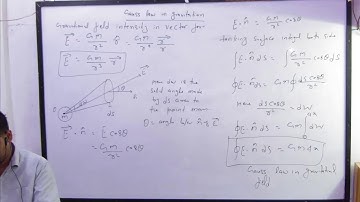 Gauss law in gravitation
Gravitational field intensity in vector form
E = Gm/r² r̂ = Gm/r² r/r
E = Gm/r³ r
E
n̂
θ
dS
m
r
now dw is the
solid angle made
by ds area to
the point mass
θ = angle b/w n̂ & E
E . n̂ = E cosθ
= Gm/r² cosθ
E . n̂ = Gm/r² cosθ
taking surface integral both side
∫E . n̂ dS = ∫ Gm/r² cosθ dS
∮E . n̂ dS = Gm ∮ dS cosθ/r²
now dS cosθ/r² = dw
∮E . n̂ dS = Gm ∫ dw
∮E . n̂ dS =
Gauss law in gravitational
field